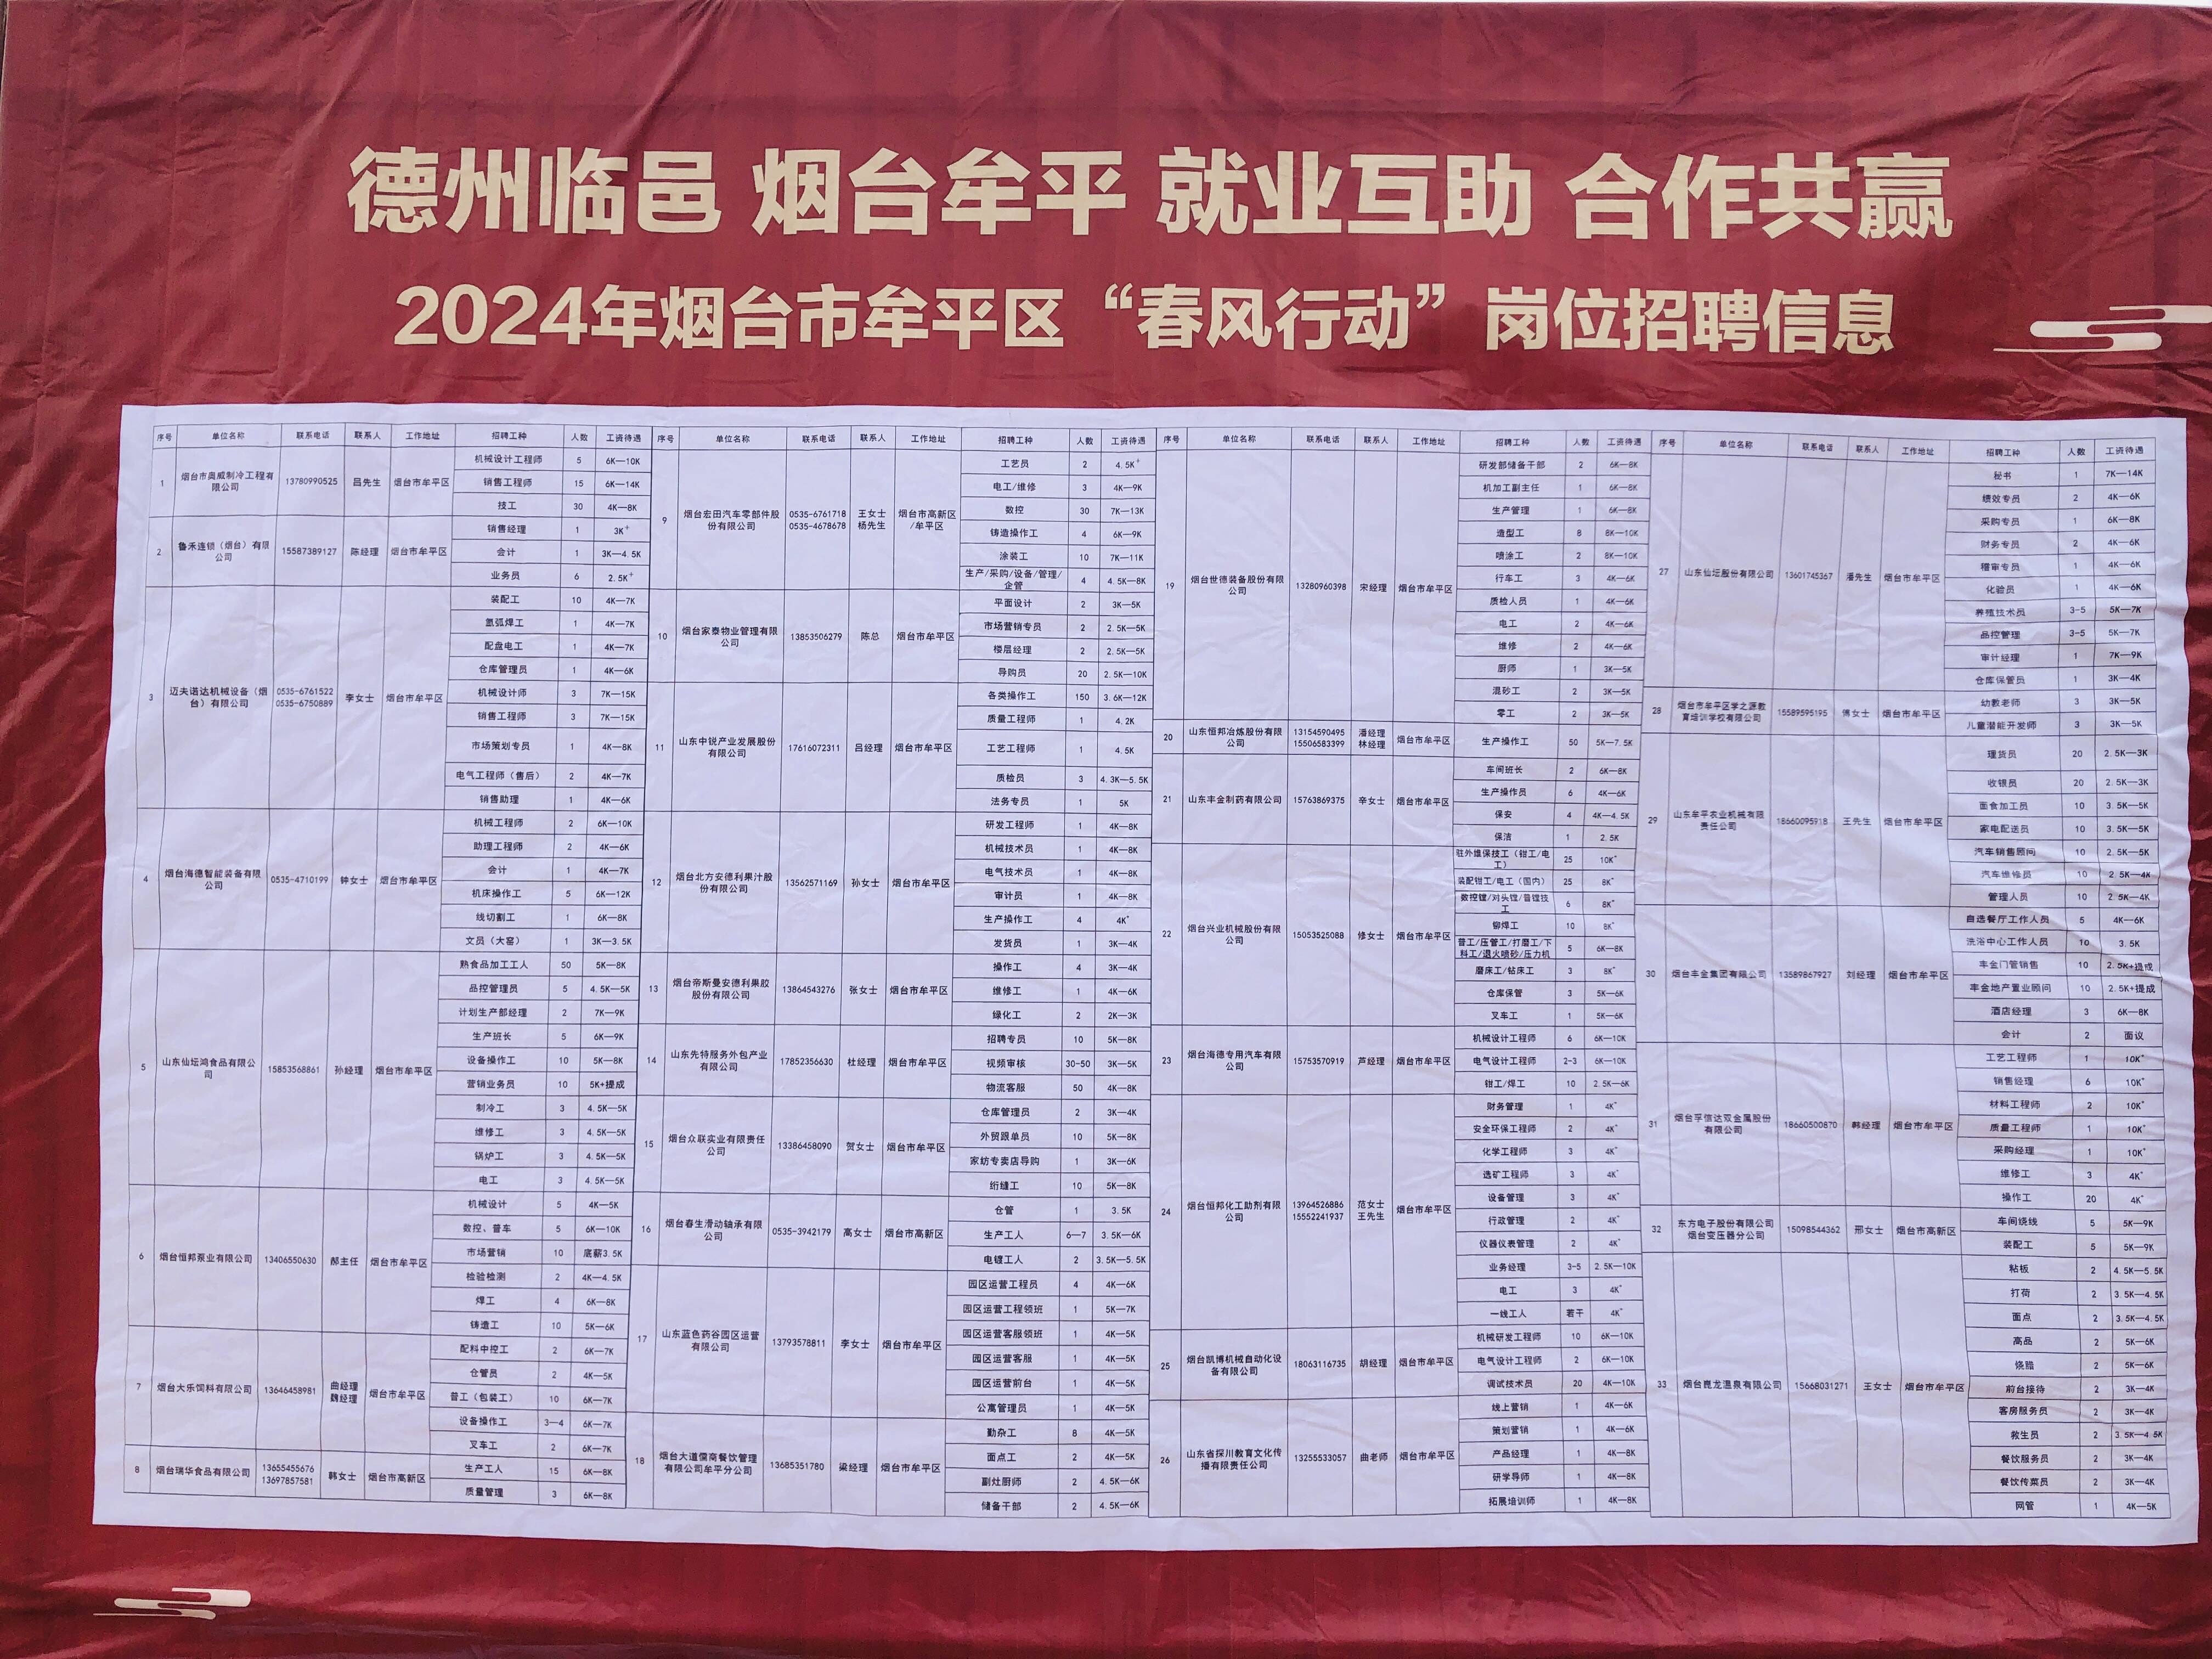 德州临邑 烟台牟平 就业互助 合作共赢
2024年烟台市牟平区“春风行动”岗位招聘信息
序号 单位名称 联系电话 联系人 工作地址 招聘工种 人数 工资待遇
1 烟台市奥威制冷工程有限公司 13780990525 吕先生 烟台市牟平区
机械设计工程师 5 6K—10K
销售工程师 15 6K—14K
技工 30 4K—8K
2 鲁禾连锁（烟台）有限公司 15587389127 陈经理 烟台市牟平区
销售经理 1 3K+
会计 1 3K—4.5K
业务员 6 2.5K+
3 迈夫诺达机械设备（烟台）有限公司 0535-6761522 0535-6750889 李女士 烟台市牟平区
装配工 10 4K—7K
氩弧焊工 1 4K—7K
配盘电工 1 4K—7K
仓库管理员 1 4K—6K
机械设计师 3 7K—15K
销售工程师 3 7K—15K
市场策划专员 1 4K—8K
电气工程师（售后） 2 4K—7K
销售助理 1 4K—6K
4 烟台海德智能装备有限公司 0535-4710199 钟女士 烟台市牟平区
机械工程师 2 6K—10K
助理工程师 2 4K—6K
会计 1 4K—7K
机床操作工 5 6K—12K
线切割工 1 6K—8K
文员（大窑） 1 3K—3.5K
5 山东仙坛鸿食品有限公司 15853568861 孙经理 烟台市牟平区
熟食品加工工人 50 5K—8K
品控管理员 5 4.5K—5K
计划生产部经理 2 7K—9K
生产班长 5 6K—9K
设备操作工 10 5K—8K
营销业务员 10 5K+提成
制冷工 3 4.5K—5K
维修工 3 4.5K—5K
锅炉工 3 4.5K—5K
电工 3 4.5K—5K
6 烟台恒邦泵业有限公司 13406550630 郝主任 烟台市牟平区
机械设计 5 4K—5K
数控、普车 5 6K—10K
市场营销 10 底薪3.5K
检验检测 2 4K—4.5K
焊工 4 6K—8K
铸造工 10 5K—6K
7 烟台大乐饲料有限公司 13646458981 曲经理 魏经理 烟台市牟平区
配料中控工 2 6K—7K
仓管员 2 4K—5K
普工（包装工） 10 6K—7K
设备操作工 3—4 6K—7K
叉车工 2 6K—7K
8 烟台瑞华食品有限公司 13655455676 13697857581 韩女士 烟台市高新区
生产工人 15 6K—8K
质量管理 3 6K—8K
序号 单位名称 联系电话 联系人 工作地址 招聘工种 人数 工资待遇
9 烟台宏田汽车零部件股份有限公司 0535-6761718 0535-4678678 王女士 杨先生 烟台市高新区/牟平区
工艺员 2 4.5K+
电工/维修 3 4K—9K
数控 30 7K—13K
铸造操作工 4 6K—9K
涂装工 10 7K—11K
生产/采购/设备/管理/企管 4 4.5K—8K
10 烟台家泰物业管理有限公司 13853506279 陈总 烟台市牟平区
平面设计 2 3K—5K
市场营销专员 2 2.5K—5K
楼层经理 2 2.5K—5K
导购员 20 2.5K—10K
11 山东中锐产业发展股份有限公司 17616072311 吕经理 烟台市牟平区
各类操作工 150 3.6K—12K
质量工程师 1 4.2K
工艺工程师 1 4.5K
质检员 3 4.3K—5.5K
法务专员 1 5K
12 烟台北方安德利果汁股份有限公司 13562571169 孙女士 烟台市牟平区
研发工程师 1 4K—8K
机械技术员 1 4K—8K
电气技术员 1 4K—8K
审计员 1 4K—8K
生产操作工 4 4K+
发货员 1 3K—4K
13 烟台帝斯曼安德利果胶股份有限公司 13864543276 张女士 烟台市牟平区
操作工 4 3K—4K
维修工 1 4K—6K
绿化工 2 2K—3K
14 山东先特服务外包产业有限公司 17852356630 杜经理 烟台市牟平区
招聘专员 10 5K—8K
视频审核 30-50 3K—5K
物流客服 50 4K—8K
15 烟台众联实业有限责任公司 13386458090 贺女士 烟台市牟平区
仓库管理员 2 3K—4K
外贸跟单员 10 5K—8K
家纺专卖店导购 1 3K—6K
绗缝工 10 5K—8K
16 烟台春生滑动轴承有限公司 0535-3942179 高女士 烟台市高新区
仓管 1 3.5K
生产工人 6—7 3.5K—6K
电镀工人 2 3.5K—5.5K
17 山东蓝色药谷园区运营有限公司 13793578811 李女士 烟台市牟平区
园区运营工程员 4 4K—6K
园区运营工程领班 1 5K—7K
园区运营客服领班 1 4K—5K
园区运营客服 1 4K—5K
园区运营前台 1 4K—5K
公寓管理员 1 4K—5K
18 烟台大道儒商餐饮管理有限公司牟平分公司 13685351780 梁经理 烟台市牟平区
勤杂工 8 4K—5K
面点工 2 4K—5K
副灶厨师 2 4.5K—6K
储备干部 2 4.5K—6K
序号 单位名称 联系电话 联系人 工作地址 招聘工种 人数 工资待遇
19 烟台世德装备股份有限公司 13280960398 宋经理 烟台市牟平区
研发部储备干部 2 6K—8K
机加工副主任 1 6K—8K
生产管理 1 6K—8K
造型工 8 8K—10K
喷涂工 2 8K—10K
行车工 3 4K—6K
质检人员 1 4K—6K
电工 2 4K—6K
维修 2 4K—6K
厨师 1 3K—5K
混砂工 2 3K—5K
零工 2 3K—5K
20 山东恒邦冶炼股份有限公司 13154590495 15506583399 潘经理 林经理 烟台市牟平区
生产操作工 50 5K—7.5K
21 山东丰金制药有限公司 15763869375 辛女士 烟台市牟平区
车间班长 2 6K—8K
生产操作员 6 4K—6K
保安 4 4K—4.5K
保洁 1 2.5K
22 烟台兴业机械股份有限公司 15053525088 修女士 烟台市牟平区
驻外维保技工（钳工/电工） 25 10K+
装配钳工/电工（国内） 25 8K+
数控镗/对头镗/普镗技工 6 8K+
铆焊工 10 8K+
普工/压管工/打磨工/下料工/退火喷砂/压力机 5 6K—8K
磨床工/钻床工 3 8K+
仓库保管 3 5K—6K
叉车工 1 5K—6K
23 烟台海德专用汽车有限公司 15753570919 芦经理 烟台市牟平区
机械设计工程师 6 6K—10K
电气设计工程师 2-3 6K—10K
钳工/焊工 10 2.5K—6K
24 烟台恒邦化工助剂有限公司 13964526886 15552241937 范女士 王先生 烟台市牟平区
财务管理 1 4K+
安全环保工程师 2 4K+
化学工程师 3 4K+
选矿工程师 3 4K+
设备管理 3 4K+
行政管理 2 4K+
仪器仪表管理 2 4K+
业务经理 3-5 2.5K—10K
电工 3 4K+
一线工人 若干 4K+
25 烟台凯博机械自动化设备有限公司 18063116735 胡经理 烟台市牟平区
机械研发工程师 10 6K—10K
电气设计工程师 2 6K—10K
调试技术员 20 4K—10K
26 山东省探川教育文化传播有限责任公司 13255533057 曲老师 烟台市牟平区
线上营销 1 4K—6K
策划营销 1 4K—6K
产品经理 1 4K—8K
研学导师 1 4K—8K
拓展培训师 1 4K—8K
序号 单位名称 联系电话 联系人 工作地址 招聘工种 人数 工资待遇
27 山东仙坛股份有限公司 13601745367 潘先生 烟台市牟平区
秘书 1 7K—14K
绩效专员 2 4K—6K
采购专员 1 6K—8K
财务专员 2 4K—6K
稽审专员 1 4K—6K
化验员 1 4K—6K
养殖技术员 3-5 5K—7K
品控管理 3-5 5K—7K
审计经理 1 7K—9K
仓库保管员 1 3K—4K
28 烟台市牟平区学之源教育培训学校有限公司 15589595195 女士 烟台市牟平区
幼教老师 3 3K—5K
儿童潜能开发师 3 3K—5K
29 山东牟平农业机械有限责任公司 18660095918 王先生 烟台市牟平区
理货员 20 2.5K—3K
收银员 20 2.5K—3K
面食加工员 10 3.5K—5K
家电配送员 10 3.5K—5K
汽车销售顾问 10 2.5K—5K
汽车维修员 10 2.5K—4K
管理人员 10 2.5K—4K
30 烟台丰金集团有限公司 13589867927 刘经理 烟台市牟平区
自选餐厅工作人员 5 4K—6K
洗浴中心工作人员 10 3.5K
丰金门管销售 10 2.5K+提成
丰金地产置业顾问 10 2.5K+提成
酒店经理 3 6K—8K
会计 2 面议
31 烟台孚信达双金属股份有限公司 18660500870 韩经理 烟台市牟平区
工艺工程师 1 10K+
销售经理 6 10K+
材料工程师 2 10K+
质量工程师 1 10K+
采购经理 1 10K+
维修工 3 4K+
操作工 20 4K+
32 东方电子股份有限公司烟台变压器分公司 15098544362 邢女士 烟台市高新区
车间绕线 5 5K—9K
装配工 5 5K—9K
33 烟台昆龙温泉有限公司 15668031271 王女士 烟台市牟平区
粘板 2 4.5K—5.5K
打荷 2 3.5K—4.5K
面点 2 3.5K—4.5K
高品 2 5K—6K
烧腊 2 5K—6K
前台接待 2 3K—4K
客房服务员 2 3K—4K
救生员 2 3.5K—4.5K
餐饮服务员 2 3K—4K
餐饮传菜员 2 3K—4K
网管 1 4K—5K